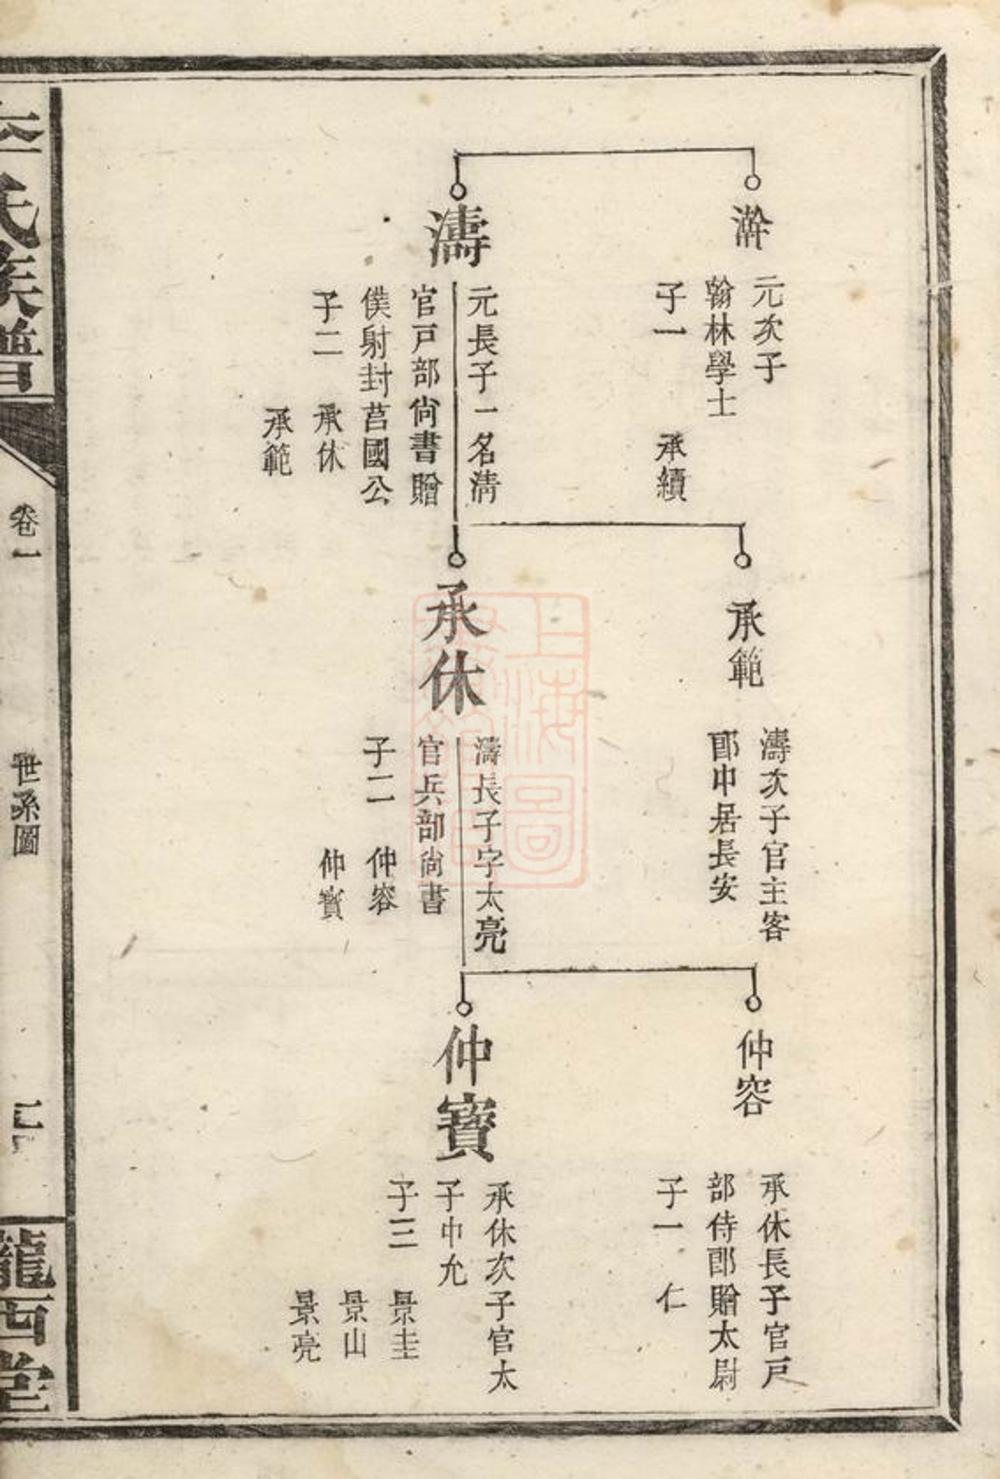 澣
元次子
翰林學士
子一　承續
濤
元長子一名淸
官戸部尙書贈
僕射封莒國公
子二　承休
承範
承範
濤次子官主客
郎中居長安
承休
濤長子字太亮
官兵部尙書
子二　仲容
仲寳
仲容
承休長子官戸
部侍郎贈太尉
子一　仁
仲寳
承休次子官太
子中允
子三　景圭
景山
景亮
李氏族譜
卷一
世系圖
龍西堂
上海圖